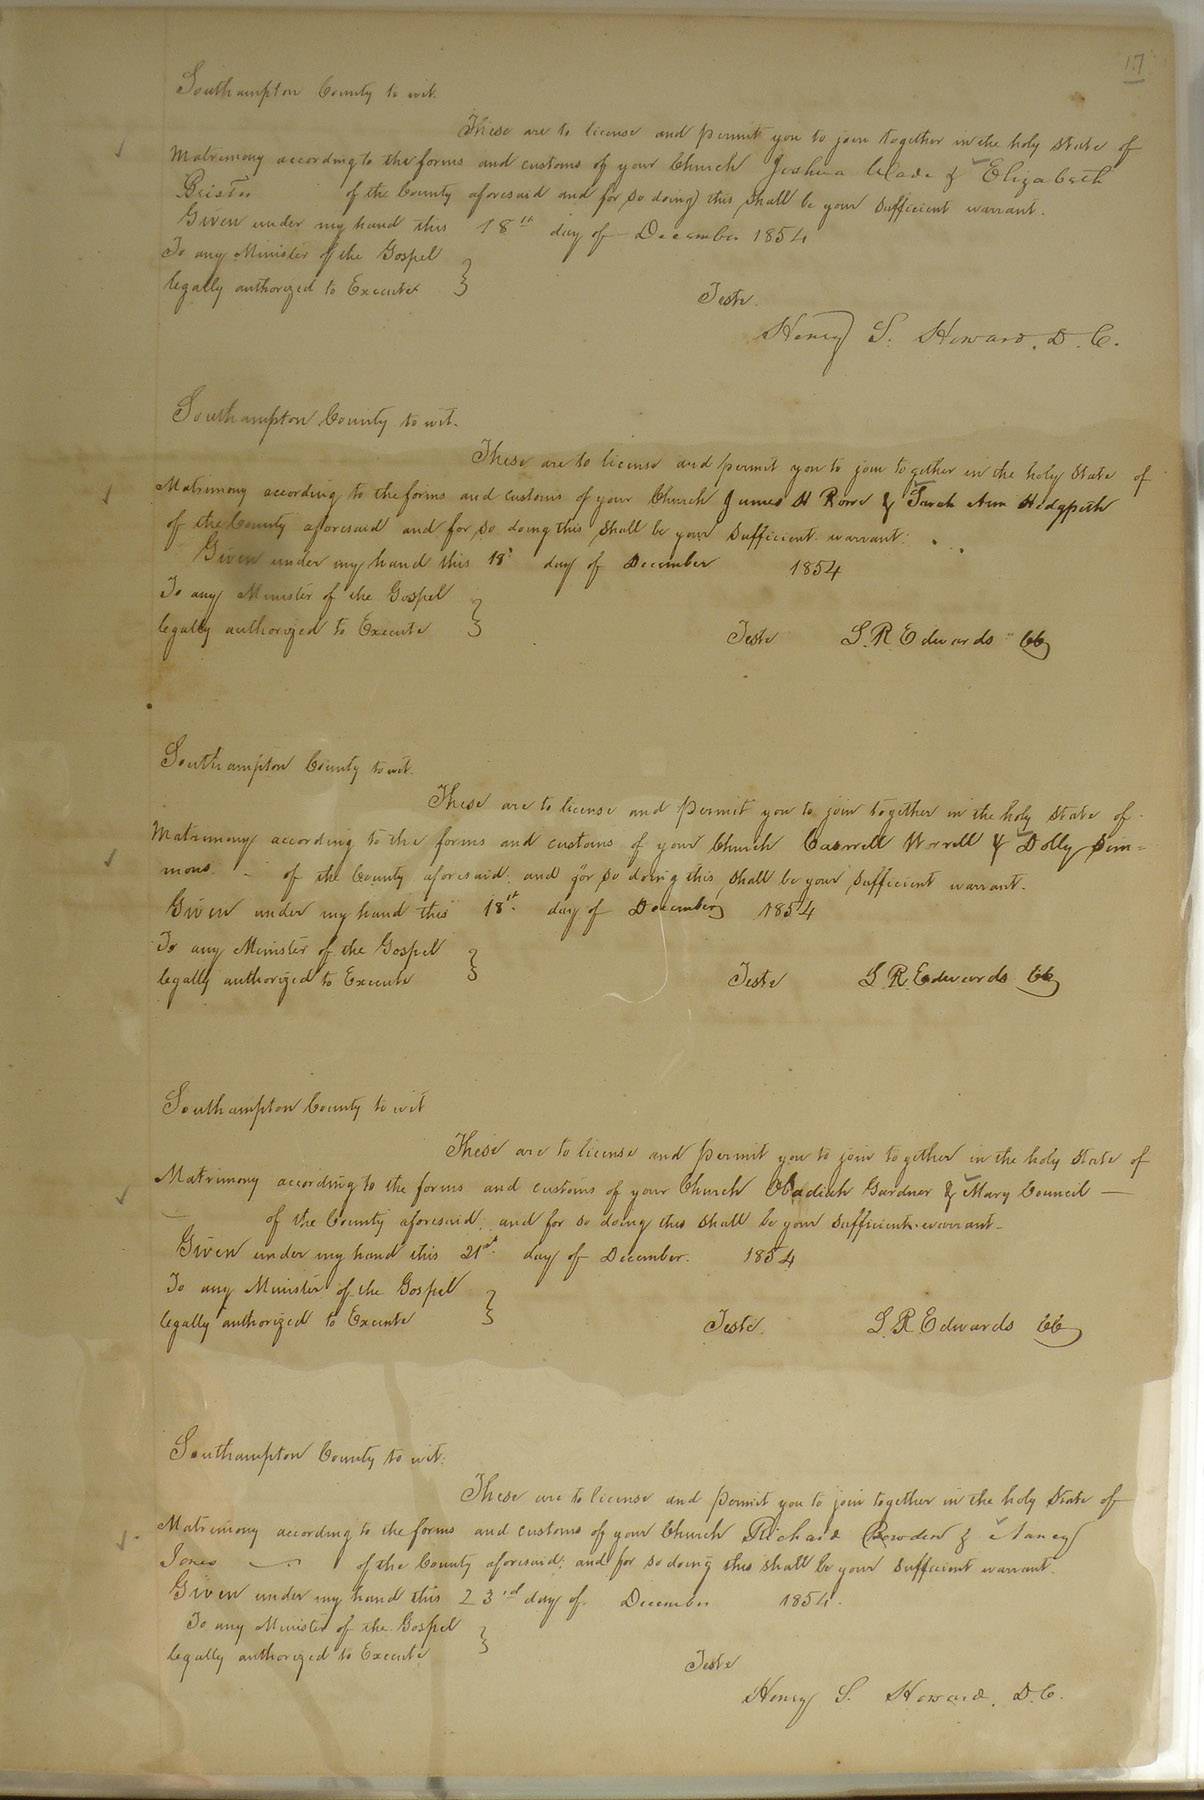 17
Southampton County to wit.
These are to license and permit you to join together in the holy state of
Matrimony according to the forms and customs of your Church Joshua Wade & Elizabeth
of the County aforesaid and for so doing this shall be your sufficient warrant.
Given under my hand this 18th day of December 1854
To any Minister of the Gospel
legally authorized to Execute }
Teste.
Henry S. Howard, D. C.
Southampton County to wit.
These are to license and permit you to join together in the holy State of
Matrimony according to the forms and customs of your Church James H & Sarah Ann Hedgpeth
of the County aforesaid and for so doing this shall be your sufficient warrant.
Given under my hand this 18th day of December 1854
To any Minister of the Gospel
legally authorized to Execute }
Teste L. R. Edwards CC
Southampton County to wit.
These are to license and permit you to join together in the holy state of
Matrimony according to the forms and customs of your Church Worrell & Dolly Sim=
mons. of the County aforesaid. and for so doing this, shall be your sufficient warrant.
Given under my hand this 18th day of December 1854
To any Minister of the Gospel
legally authorized to Execute }
Teste L. R. Edwards CC
Southampton County to wit
These are to license and permit you to join together in the holy state of
Matrimony according to the forms and customs of your Church Obadiah Gardner & Mary Council —
of the County aforesaid, and for so doing this shall be your sufficient warrant.
Given under my hand this 21st day of December. 1854
To any Minister of the Gospel
legally authorized to Execute }
Teste. L. R. Edwards CC
Southampton County to wit:
These are to license and permit you to join together in the holy State of
Matrimony according to the forms and customs of your Church Richard Bowden & Nancy
Jones of the County aforesaid; and for so doing this shall be your sufficient warrant.
Given under my hand this 23rd day of December 1854.
To any Minister of the Gospel
legally authorized to Execute }
Teste
Henry S. Howard, D. C.